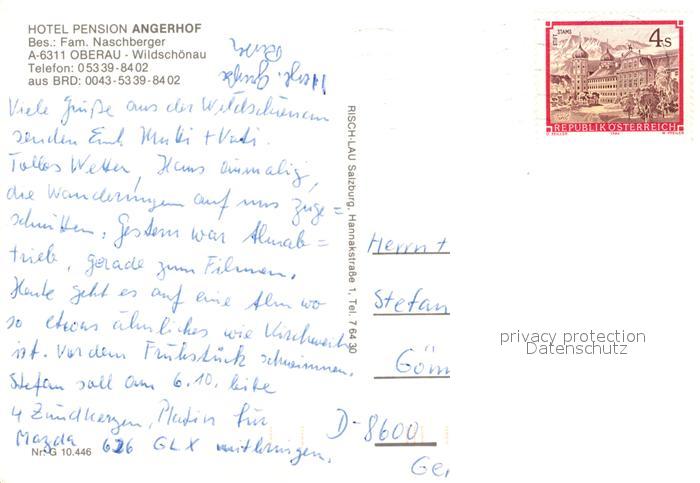 HOTEL PENSION ANGERHOF
Bes.: Fam. Naschberger
A-6311 OBERAU - Wildschönau
Telefon: 05339-8402
aus BRD: 0043-5339-8402
Viele Grüße aus der Wildschönau
senden Euch Mutti + Vati.
Tolles Wetter, Haus einmalig,
die Wanderungen auf uns zuge=
schnitten. Gestern war Almab=
trieb, gerade zum Filmen.
Heute geht es auf eine Alm wo
so etwas ähnliches wie Kirchweih
ist. Vor dem Frühstück schwimmen.
Stefan soll am 6.10. bitte
4 Zündkerzen, Platin für
Mazda 626 GLX mitbringen.
Nr. G 10.446
RISCH-LAU Salzburg, Hannakstraße 1, Tel. 7 64 30
STIFT STAMS
4 S
REPUBLIK ÖSTERREICH
Herrn +
Stefan
D-8600
privacy protection
Datenschutz